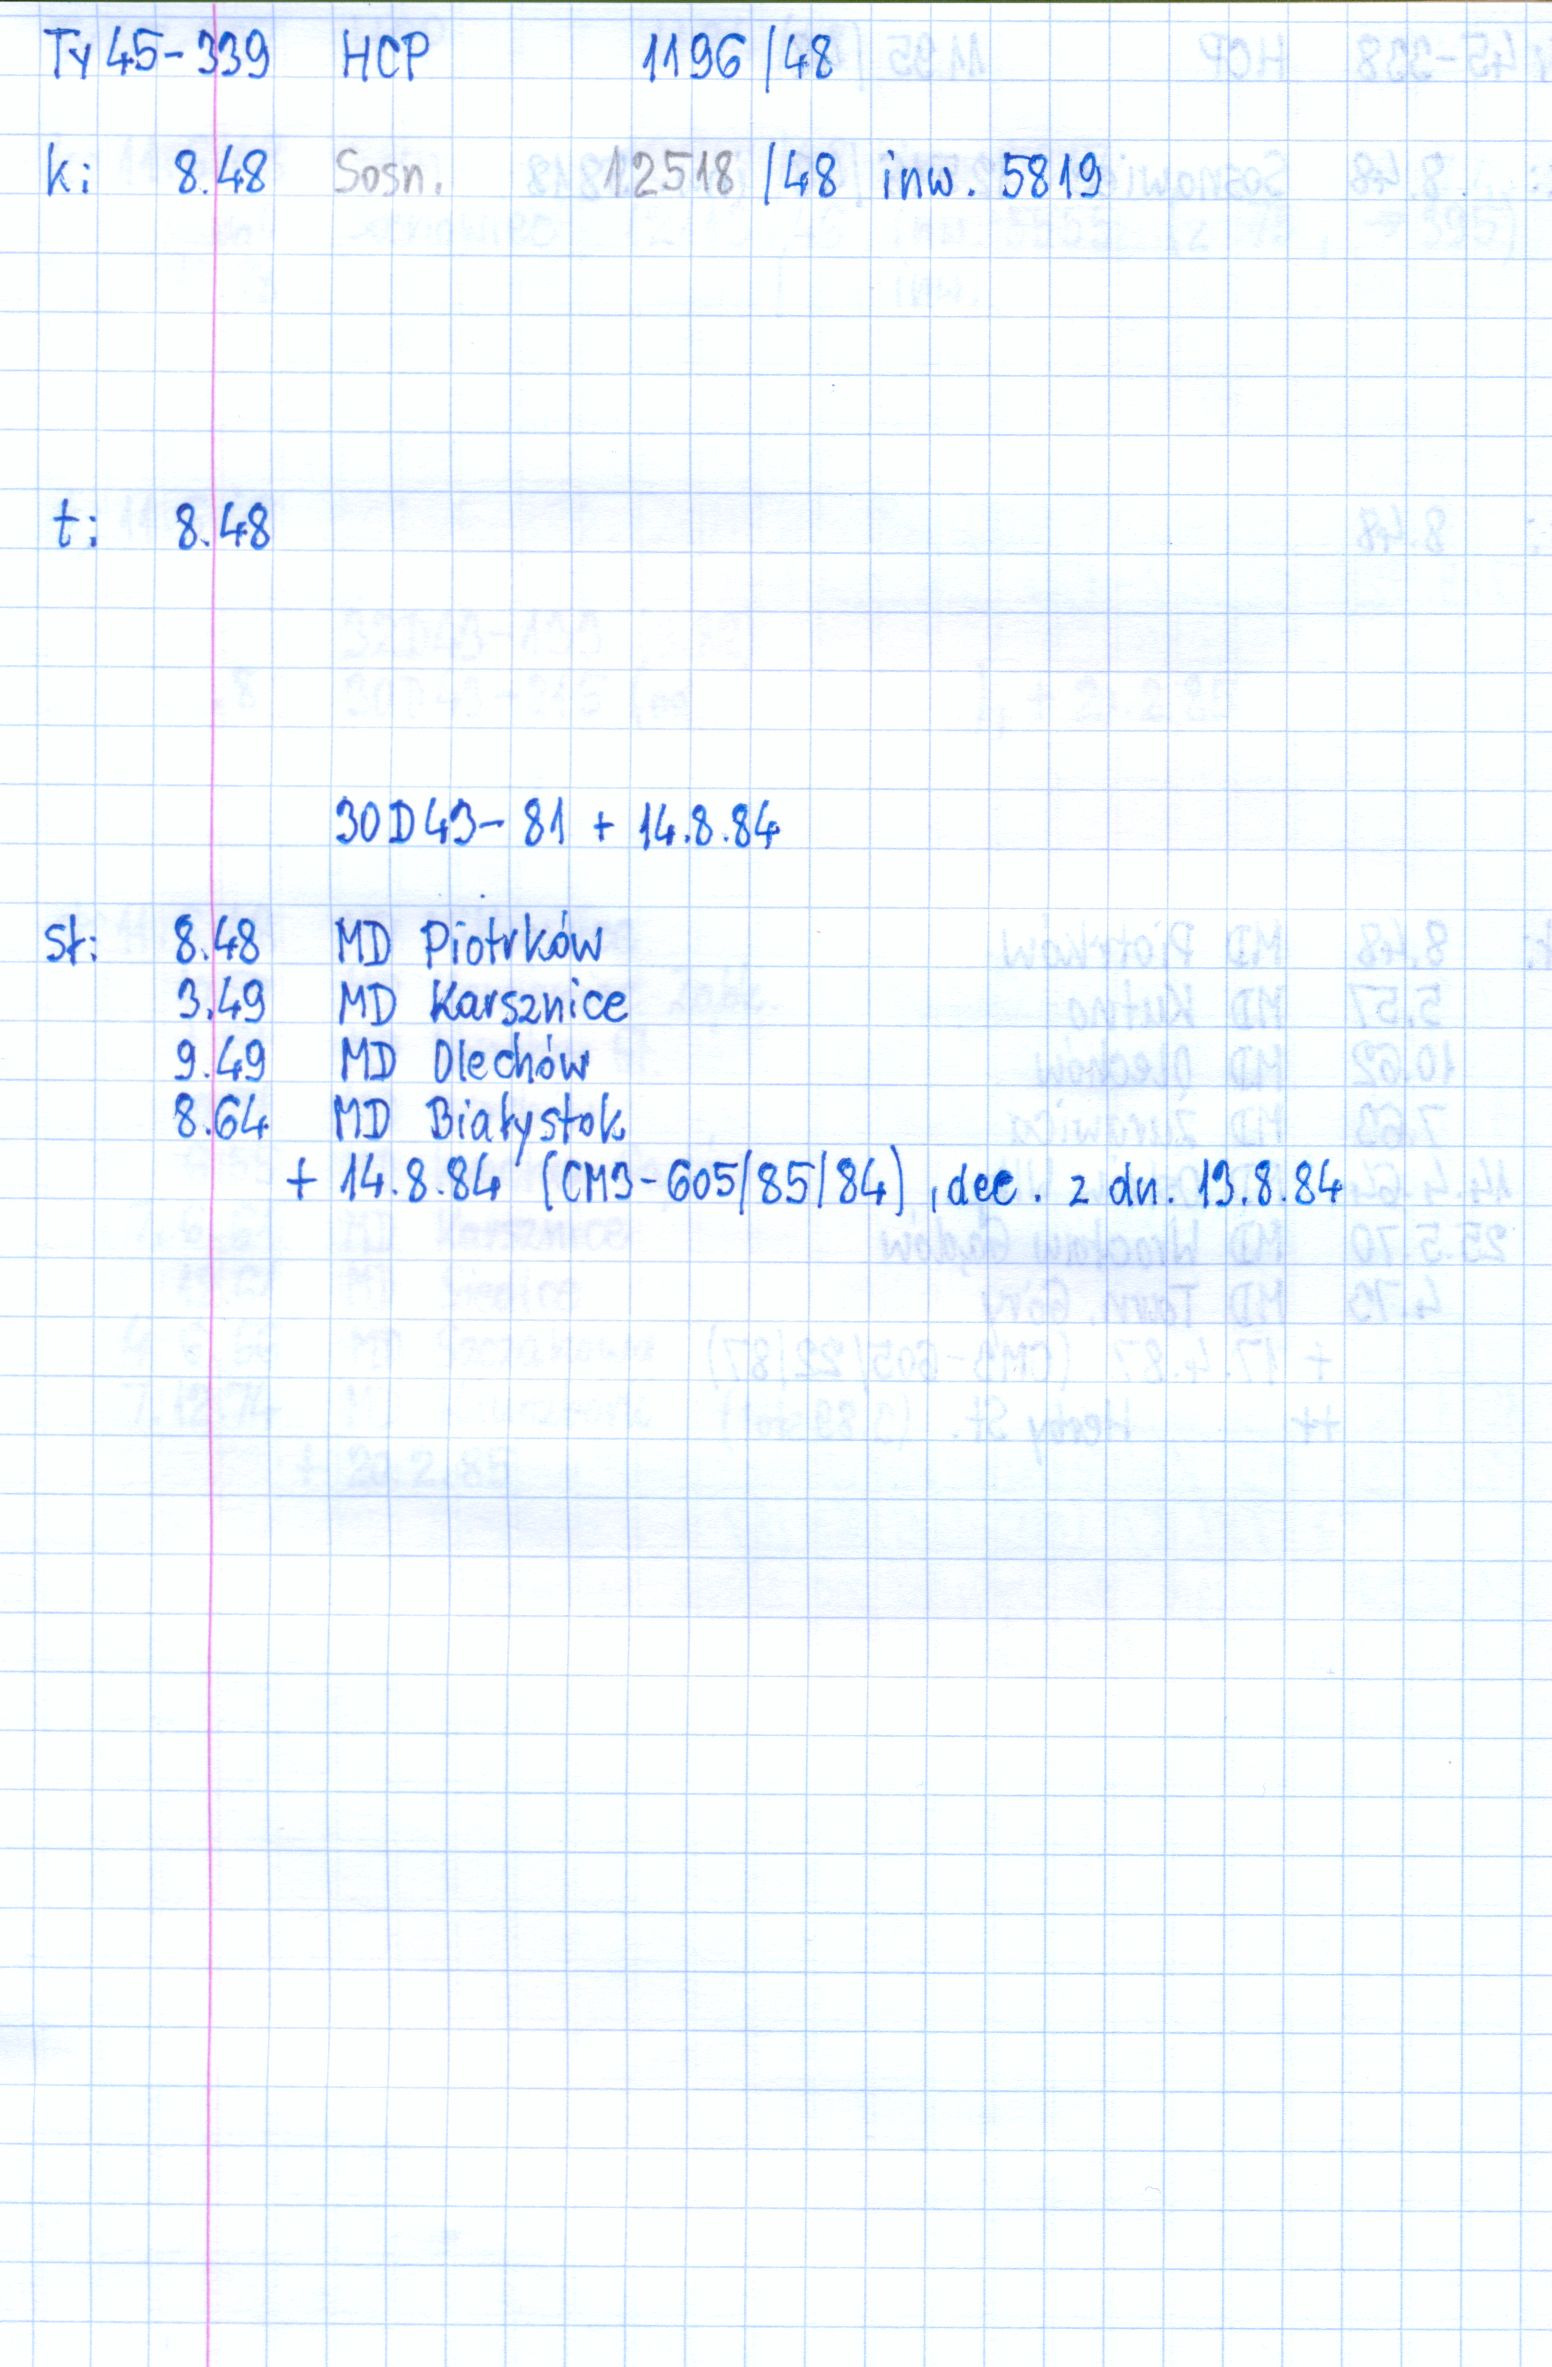 Ty45-339 HCP 1196/48
k: 8.48 Sosn. 12518/48 inw. 5819
t: 8.48
30D43-81 + 14.8.84
st: 8.48 MD Piotrków
3.49 MD Karsznice
9.49 MD Olechów
8.64 MD Białystok
+ 14.8.84 (CM3-605/85/84), dec. z dn. 13.8.84